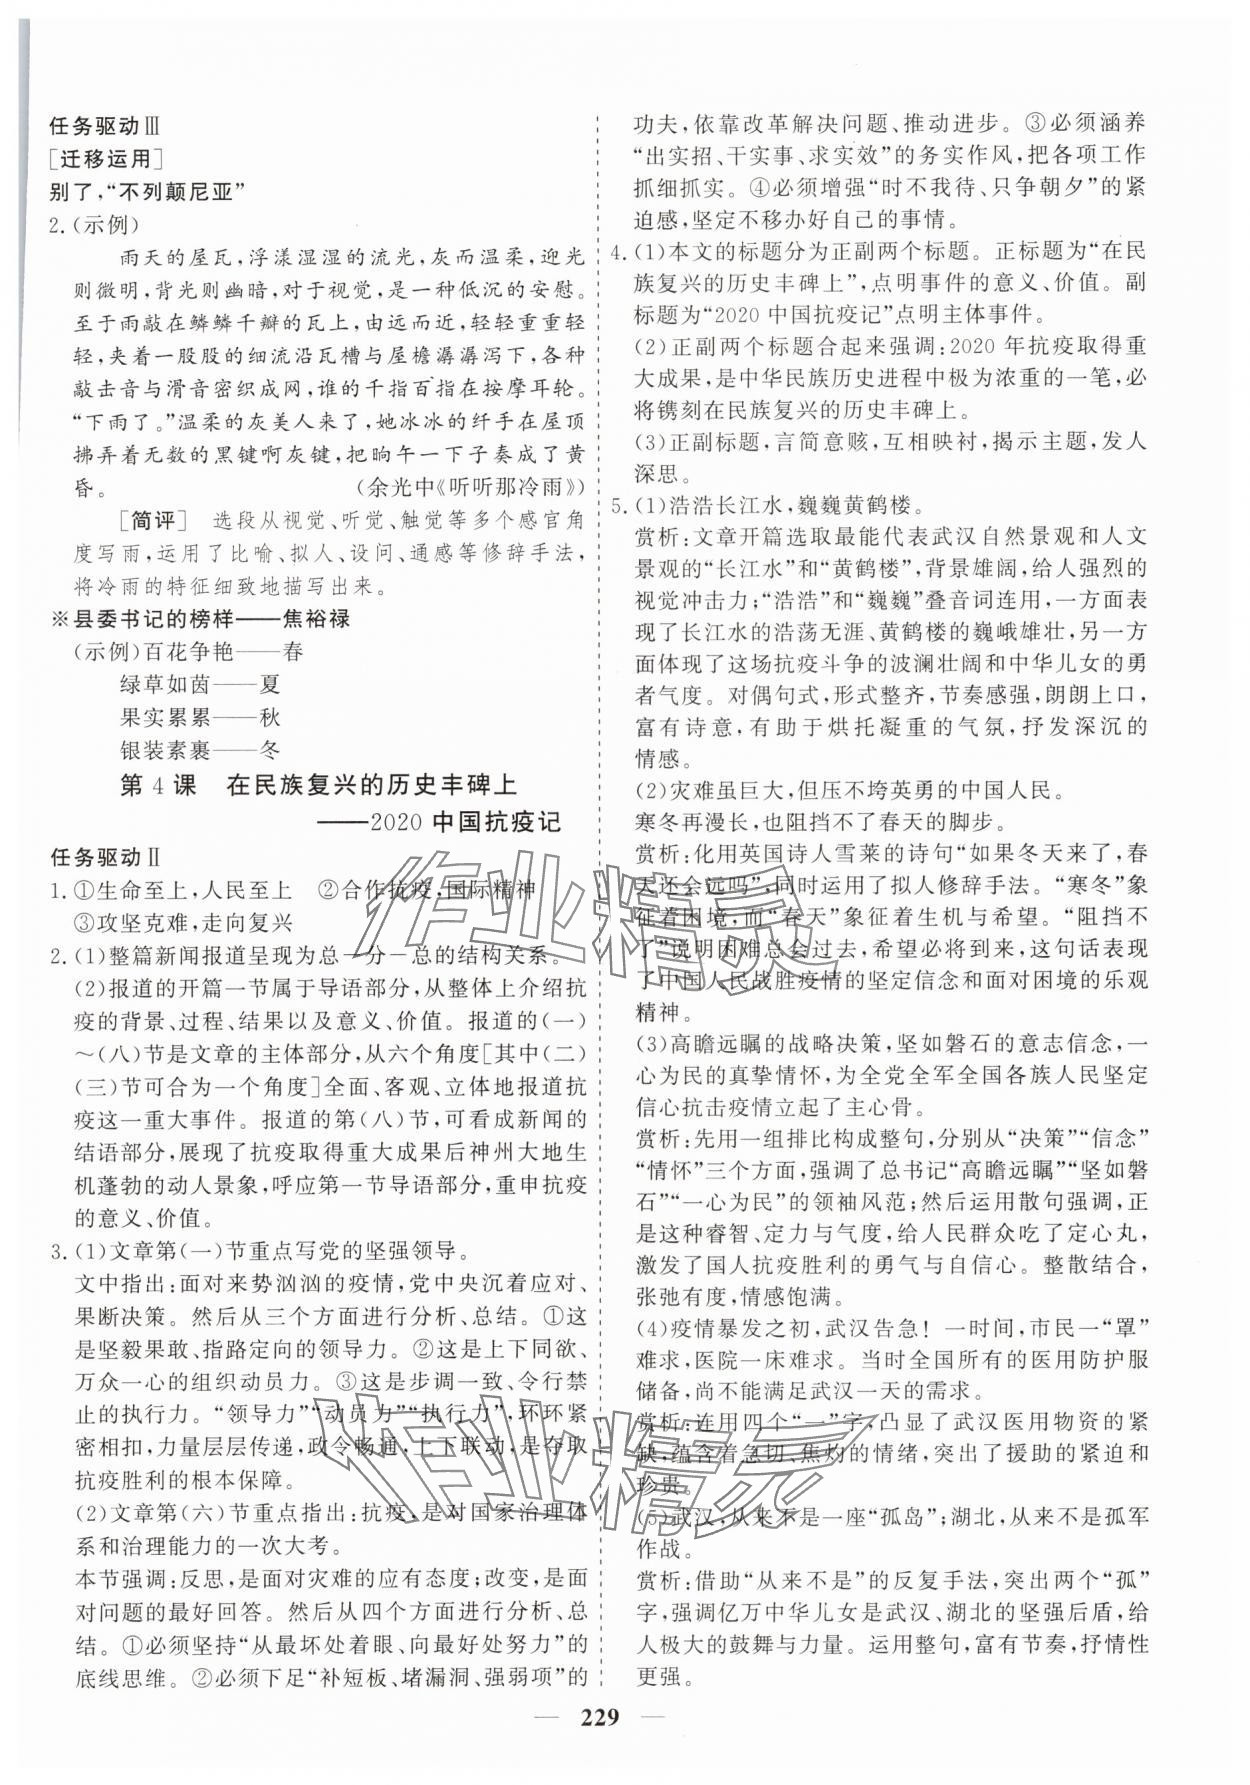 任务驱动Ⅲ
[迁移运用]
别了，“不列颠尼亚”
2.(示例)
雨天的屋瓦，浮漾湿湿的流光，灰而温柔，迎光
则微明，背光则幽暗，对于视觉，是一种低沉的安慰。
至于雨敲在鳞鳞千瓣的瓦上，由远而近，轻轻重重轻
轻，夹着一股股的细流沿瓦槽与屋檐潺潺泻下，各种
敲击音与滑音密织成网，谁的千指百指在按摩耳轮。
“下雨了。”温柔的灰美人来了，她冰冰的纤手在屋顶
拂弄着无数的黑键啊灰键，把晌午一下子奏成了黄
昏。　（余光中《听听那冷雨》）
[简评]　选段从视觉、听觉、触觉等多个感官角
度写雨，运用了比喻、拟人、设问、通感等修辞手法，
将冷雨的特征细致地描写出来。
※县委书记的榜样——焦裕禄
(示例)百花争艳——春
绿草如茵——夏
果实累累——秋
银装素裹——冬
第 4 课　在民族复兴的历史丰碑上
——2020 中国抗疫记
任务驱动Ⅱ
1.①生命至上，人民至上　②合作抗疫，国际精神
③攻坚克难，走向复兴
2.(1)整篇新闻报道呈现为总－分－总的结构关系。
(2)报道的开篇一节属于导语部分，从整体上介绍抗
疫的背景、过程、结果以及意义、价值。报道的(一)
～(八)节是文章的主体部分，从六个角度[其中(二)
(三)节可合为一个角度]全面、客观、立体地报道抗
疫这一重大事件。报道的第(八)节，可看成新闻的
结语部分，展现了抗疫取得重大成果后神州大地生
机蓬勃的动人景象，呼应第一节导语部分，重申抗疫
的意义、价值。
3.(1)文章第(一)节重点写党的坚强领导。
文中指出：面对来势汹汹的疫情，党中央沉着应对、
果断决策。然后从三个方面进行分析、总结。①这
是坚毅果敢、指路定向的领导力。②这是上下同欲、
万众一心的组织动员力。③这是步调一致、令行禁
止的执行力。“领导力”“动员力”“执行力”，环环紧
密相扣，力量层层传递，政令畅通，上下联动，是夺取
抗疫胜利的根本保障。
(2)文章第(六)节重点指出：抗疫，是对国家治理体
系和治理能力的一次大考。
本节强调：反思，是面对灾难的应有态度；改变，是面
对问题的最好回答。然后从四个方面进行分析、总
结。①必须坚持“从最坏处着眼、向最好处努力”的
底线思维。②必须下足“补短板、堵漏洞、强弱项”的
功夫，依靠改革解决问题、推动进步。③必须涵养
“出实招、干实事、求实效”的务实作风，把各项工作
抓细抓实。④必须增强“时不我待、只争朝夕”的紧
迫感，坚定不移办好自己的事情。
4.(1)本文的标题分为正副两个标题。正标题为“在民
族复兴的历史丰碑上”，点明事件的意义、价值。副
标题为“2020 中国抗疫记”点明主体事件。
(2)正副两个标题合起来强调：2020 年抗疫取得重
大成果，是中华民族历史进程中极为浓重的一笔，必
将镌刻在民族复兴的历史丰碑上。
(3)正副标题，言简意赅，互相映衬，揭示主题，发人
深思。
5.(1)浩浩长江水，巍巍黄鹤楼。
赏析：文章开篇选取最能代表武汉自然景观和人文
景观的“长江水”和“黄鹤楼”，背景雄阔，给人强烈的
视觉冲击力；“浩浩”和“巍巍”叠音词连用，一方面表
现了长江水的浩荡无涯、黄鹤楼的巍峨雄壮，另一方
面体现了这场抗疫斗争的波澜壮阔和中华儿女的勇
者气度。对偶句式，形式整齐，节奏感强，朗朗上口，
富有诗意，有助于烘托凝重的气氛，抒发深沉的
情感。
(2)灾难虽巨大，但压不垮英勇的中国人民。
寒冬再漫长，也阻挡不了春天的脚步。
赏析：化用英国诗人雪莱的诗句“如果冬天来了，春
天还会远吗”，同时运用了拟人修辞手法。“寒冬”象
征着困境，而“春天”象征着生机与希望。“阻挡不
了”说明困难总会过去，希望必将到来，这句话表现
了中国人民战胜疫情的坚定信念和面对困境的乐观
精神。
(3)高瞻远瞩的战略决策，坚如磐石的意志信念，一
心为民的真挚情怀，为全党全军全国各族人民坚定
信心抗击疫情立起了主心骨。
赏析：先用一组排比构成整句，分别从“决策”“信念”
“情怀”三个方面，强调了总书记“高瞻远瞩”“坚如磐
石”“一心为民”的领袖风范；然后运用散句强调，正
是这种睿智、定力与气度，给人民群众吃了定心丸，
激发了国人抗疫胜利的勇气与自信心。整散结合，
张弛有度，情感饱满。
(4)疫情暴发之初，武汉告急！一时间，市民一“罩”
难求，医院一床难求。当时全国所有的医用防护服
储备，尚不能满足武汉一天的需求。
赏析：连用四个“一”字，凸显了武汉医用物资的紧
缺，蕴含着急切、焦灼的情绪，突出了援助的紧迫和
珍贵。
(5)武汉，从来不是一座“孤岛”；湖北，从来不是孤军
作战。
赏析：借助“从来不是”的反复手法，突出两个“孤”
字，强调亿万中华儿女是武汉、湖北的坚强后盾，给
人极大的鼓舞与力量。运用整句，富有节奏，抒情性
更强。
— 229 —
作业精灵
作业精灵